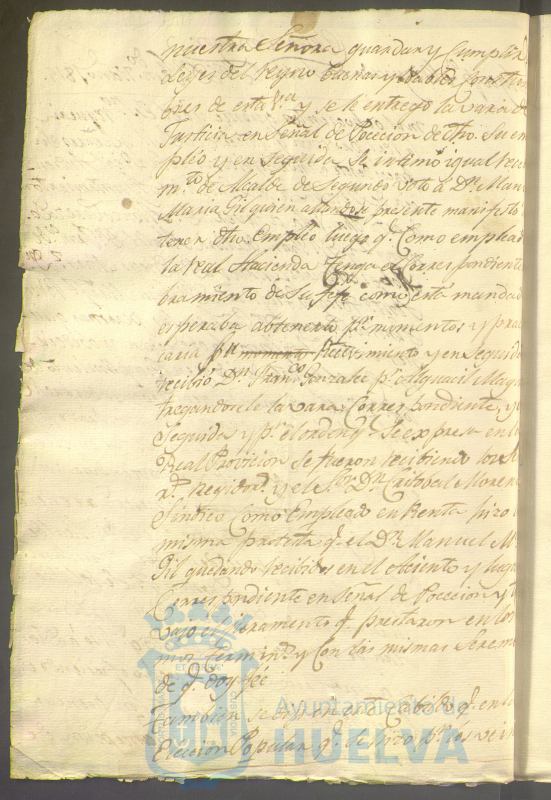 nuestra Señora guardar y Cumplir
Leyes del reyno buenas y
bres de esta Vª y se le entrego la vara de
Justicia en Señal de Poceción de dho. Su em
pleo y en Seguida Se intimó igual
m.to de Alcalde de Segundo voto a Dn. Man
Maria Gil quien allandose presente manifestó
tener dho. Empleo luego q. Como emplead
la Real Hacienda tenga el Correspondiente
bramiento de Su Jefe como está mandad
esperaba obtenerlo pr. momentos y
taria su momento Recivimiento y en Seguida
recibió Dn. Franco Gonzalez pr. Alguacil Mayo
tregandosele la vara Correspondiente, y
Seguida y pr. el orden q. Se expresa en la
Real Provicion Se fueron recibiendo los
Regidor y el Sor. Dn. Cristobal Moreno
Sindico Como Empleado en Renta hizo
misma protesta q. el Dn. Manuel M
Gil quedando recibidos en el aciento y lugar
Correspondiente en Señal de Poceción y
vajo el Juramento q. prestaron en los
mos terminos y Con las mismas Seremo
de q. doy fée
Tambien Se en este Cabildo q. en la
Elección Popular q. Se hizo
Ayuntamiento de
HUELVA